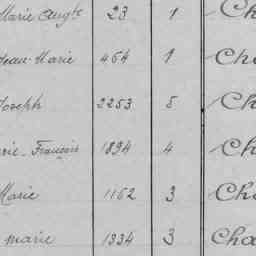 Marie Augte 23 1 Ch
Jean-Marie 464 1 Ch
Joseph 2253 5 Ch
rie-François 1894 4 Ch
Marie 1162 3 Ch
marie 1334 3 Cha